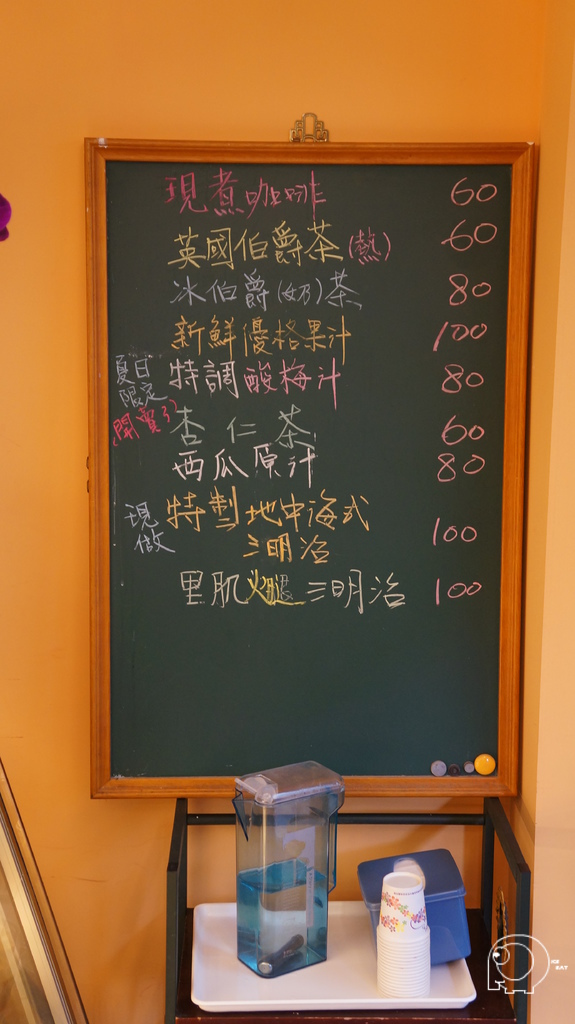 現煮咖啡 60
英國伯爵茶(熱) 60
冰伯爵(奶)茶 80
新鮮優格果汁 100
夏日
限定
開賣了
特調酸梅汁 80
杏仁茶 60
西瓜原汁 80
現
做
特製地中海式
三明治 100
里肌火腿三明治 100